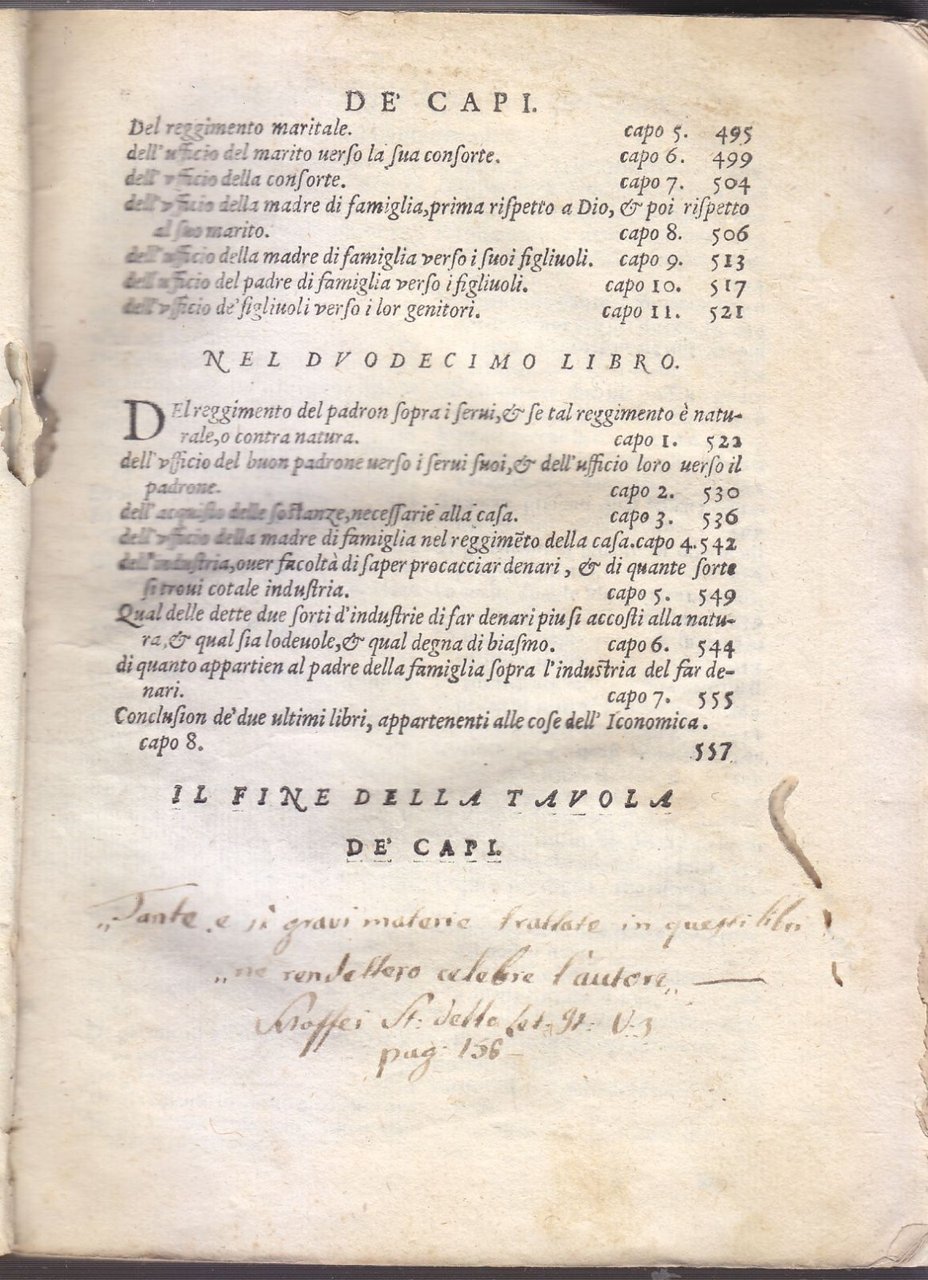 DE' CAPI.
Del reggimento maritale. capo 5. 495
dell'ufficio del marito uerſo la ſua conſorte. capo 6. 499
dell'vfficio della conſorte. capo 7. 504
dell'vfficio della madre di famiglia,prima riſpetto a Dio, & poi riſpetto
al ſuo marito. capo 8. 506
dell'ufficio della madre di famiglia verſo i ſuoi figliuoli. capo 9. 513
dell'ufficio del padre di famiglia verſo i figliuoli. capo 10. 517
dell'vfficio de' figliuoli verſo i lor genitori. capo 11. 521
NEL DVODECIMO LIBRO.
DEl reggimento del padron ſopra i ſerui,& ſe tal reggimento è natu-
rale,o contra natura. capo 1. 522
dell'vfficio del buon padrone uerſo i ſerui ſuoi,& dell'ufficio loro uerſo il
padrone. capo 2. 530
dell'acquiſto delle ſoſtanze,neceſſarie alla caſa. capo 3. 536
dell'vfficio della madre di famiglia nel reggimẽto della caſa.capo 4.542
dell'induſtria,ouer facoltà di ſaper procacciar denari, & di quante ſorte
ſi troui cotale induſtria. capo 5. 549
Qual delle dette due ſorti d'induſtrie di far denari piu ſi accoſti alla natu-
ra,& qual ſia lodeuole,& qual degna di biaſmo. capo 6. 544
di quanto appartien al padre della famiglia ſopra l'induſtria del far de-
nari. capo 7. 555
Concluſion de' due ultimi libri, appartenenti alle coſe dell' Iconomica.
capo 8. 557
IL FINE DELLA TAVOLA
DE' CAPI.
„Tante e sì gravi materie trattate in questi libri
„ne rendettero celebre l'autore„ —
St: della Let. It: V. 3
pag. 156